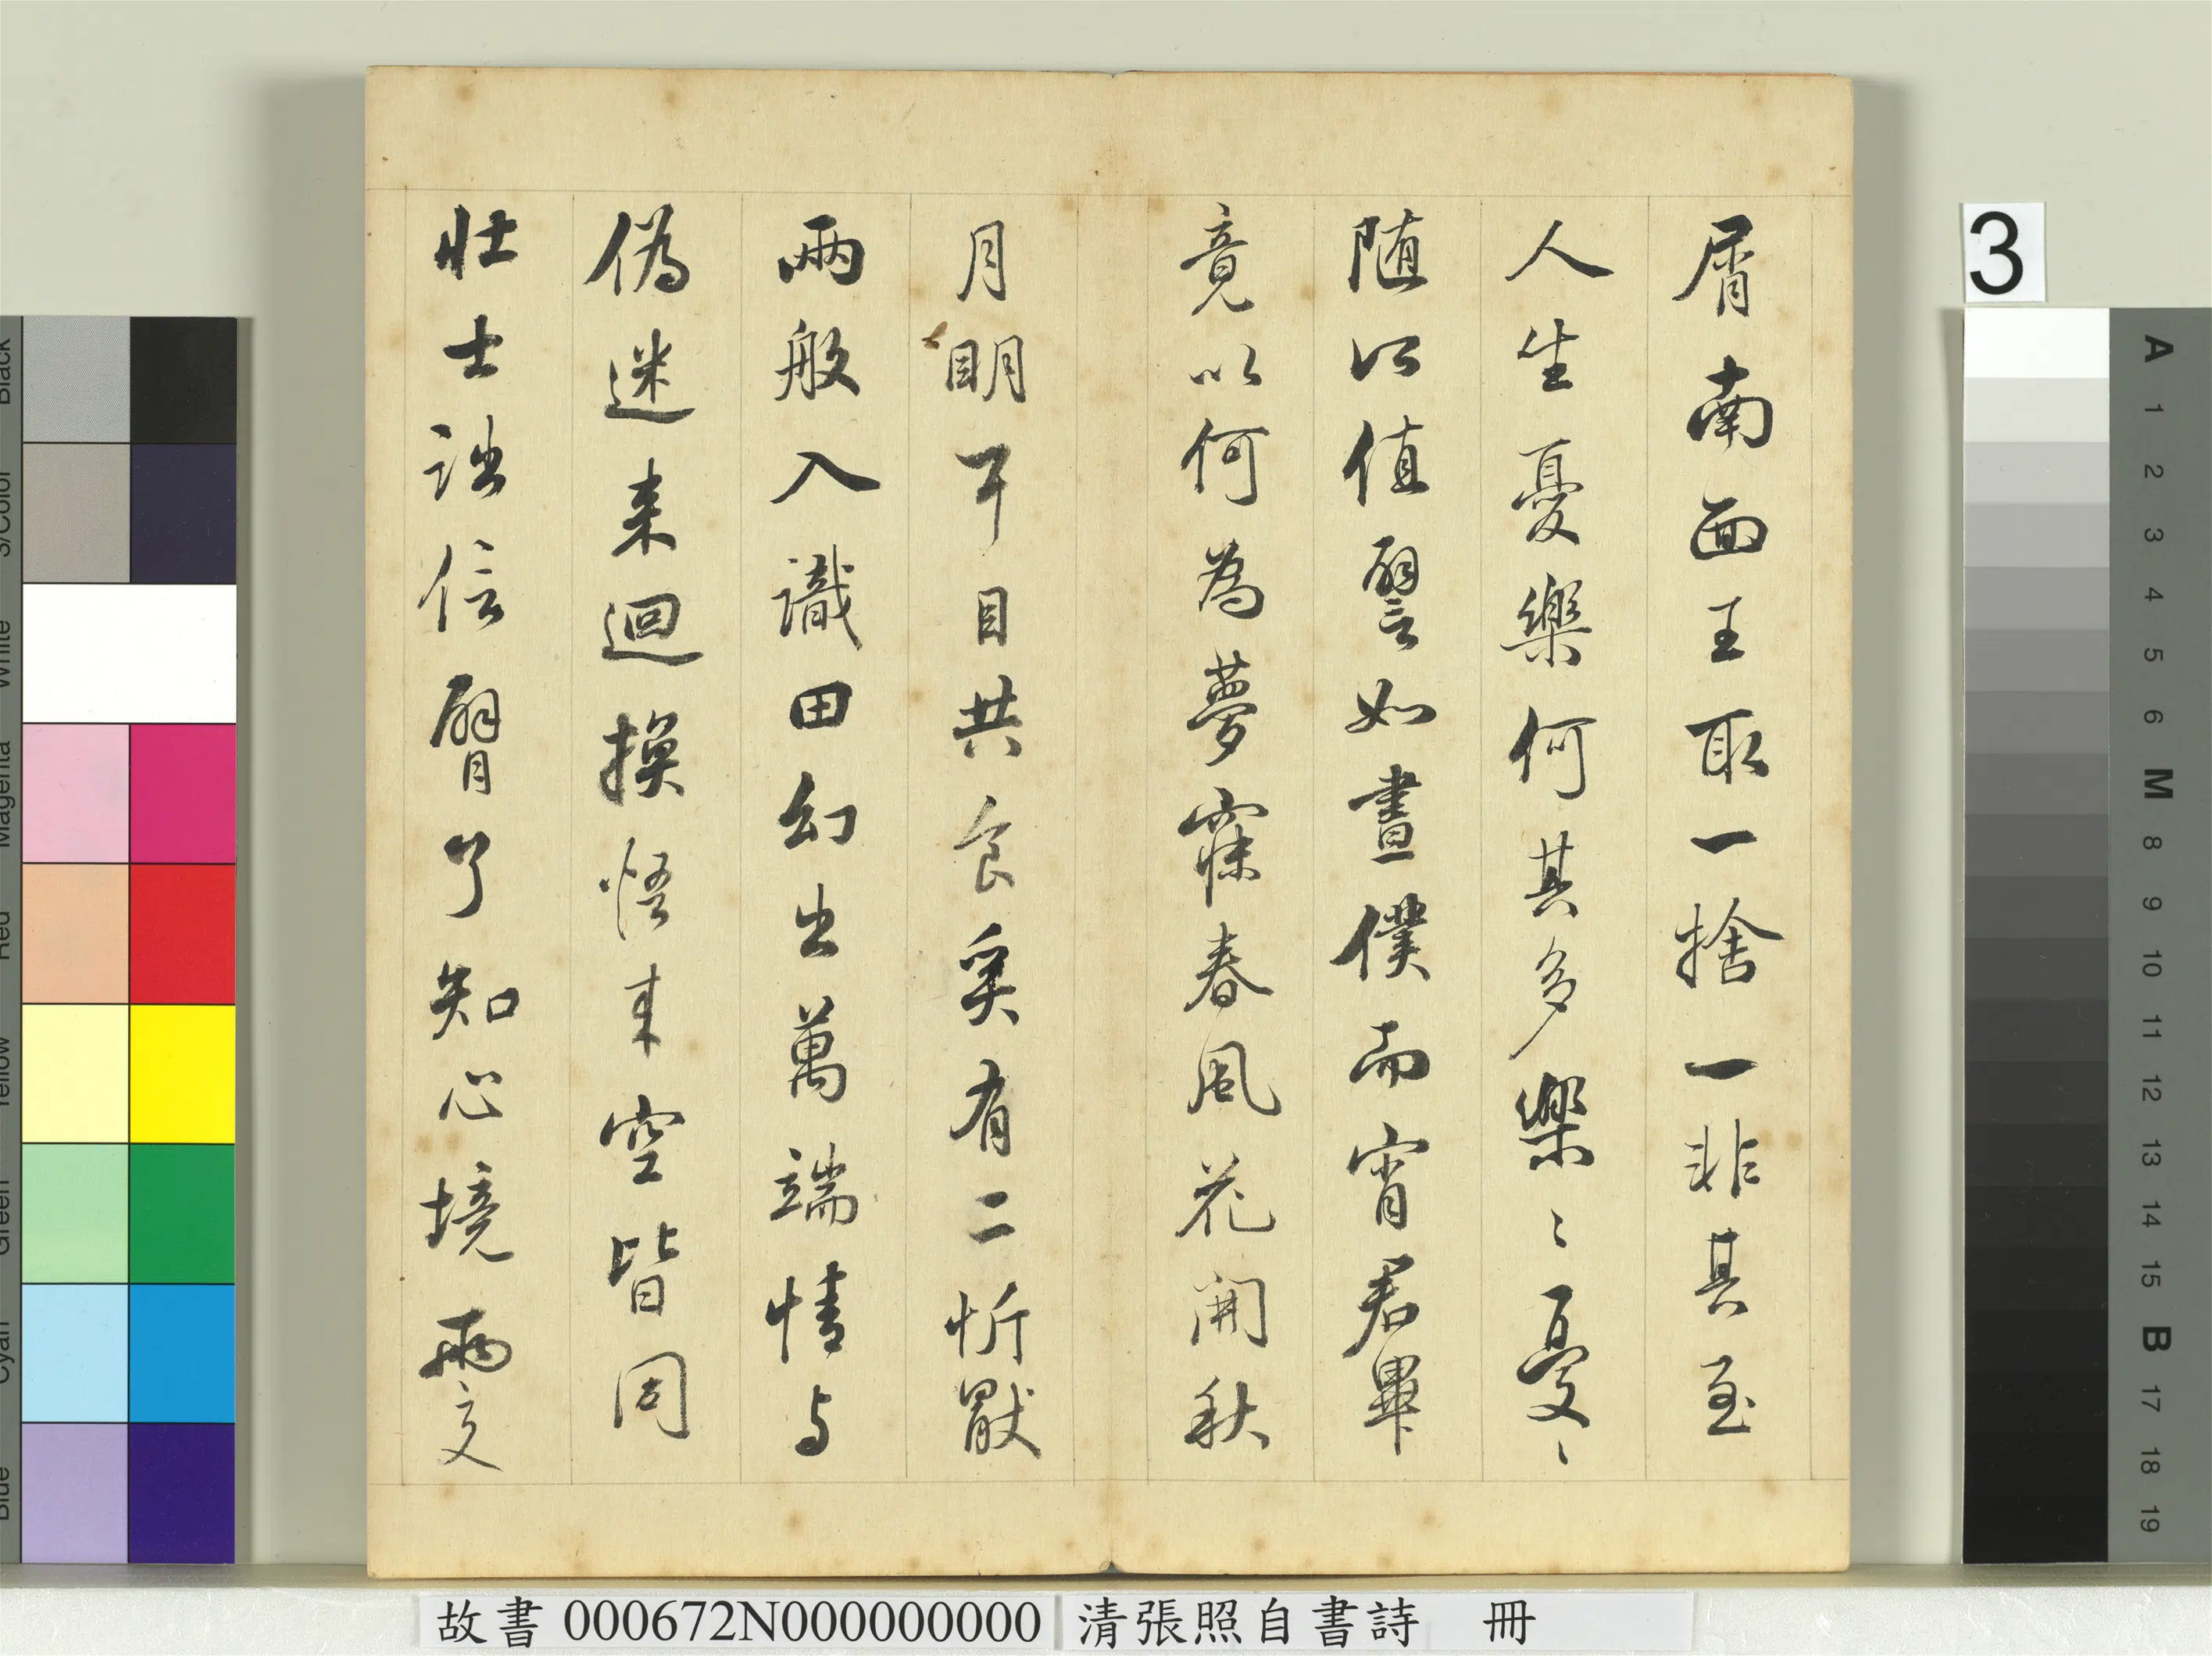 屑南面王取一捨一非其至
人生憂樂何其多樂〻憂〻
随所值譬如晝僕而宵君畢
竟以何為夢寐春風花開秋
月明耳目共食奚有二忻厭
兩般入識田幻出萬端情与
偽迷来迴換悟来空皆同
壯士詘信臂了知心境兩交
3
故書 000672N000000000 清張照自書詩 冊
Black
3/Color
White
Magenta
Red
Yellow
Green
Cyan
Blue
A
1
2
3
4
5
6
M
8
9
10
11
12
13
14
15
B
17
18
19